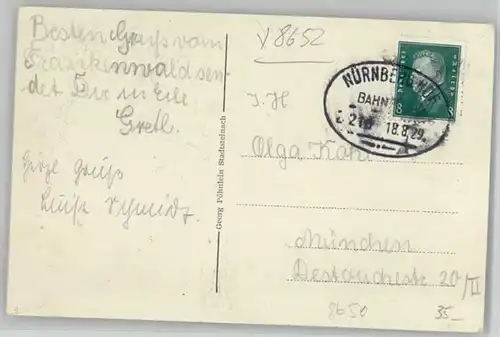 V 8652
Besten Gruß vom
Frankenwald sen-
det Dir in Eile
Gretl.
Gruß
Luise Schmidt
Georg Föhnlein Stadtsteinach
NÜRNBERG
BAHN
18.8.29.
8 8
Olga
München
Destouchestr. 20/II
8650
35.-